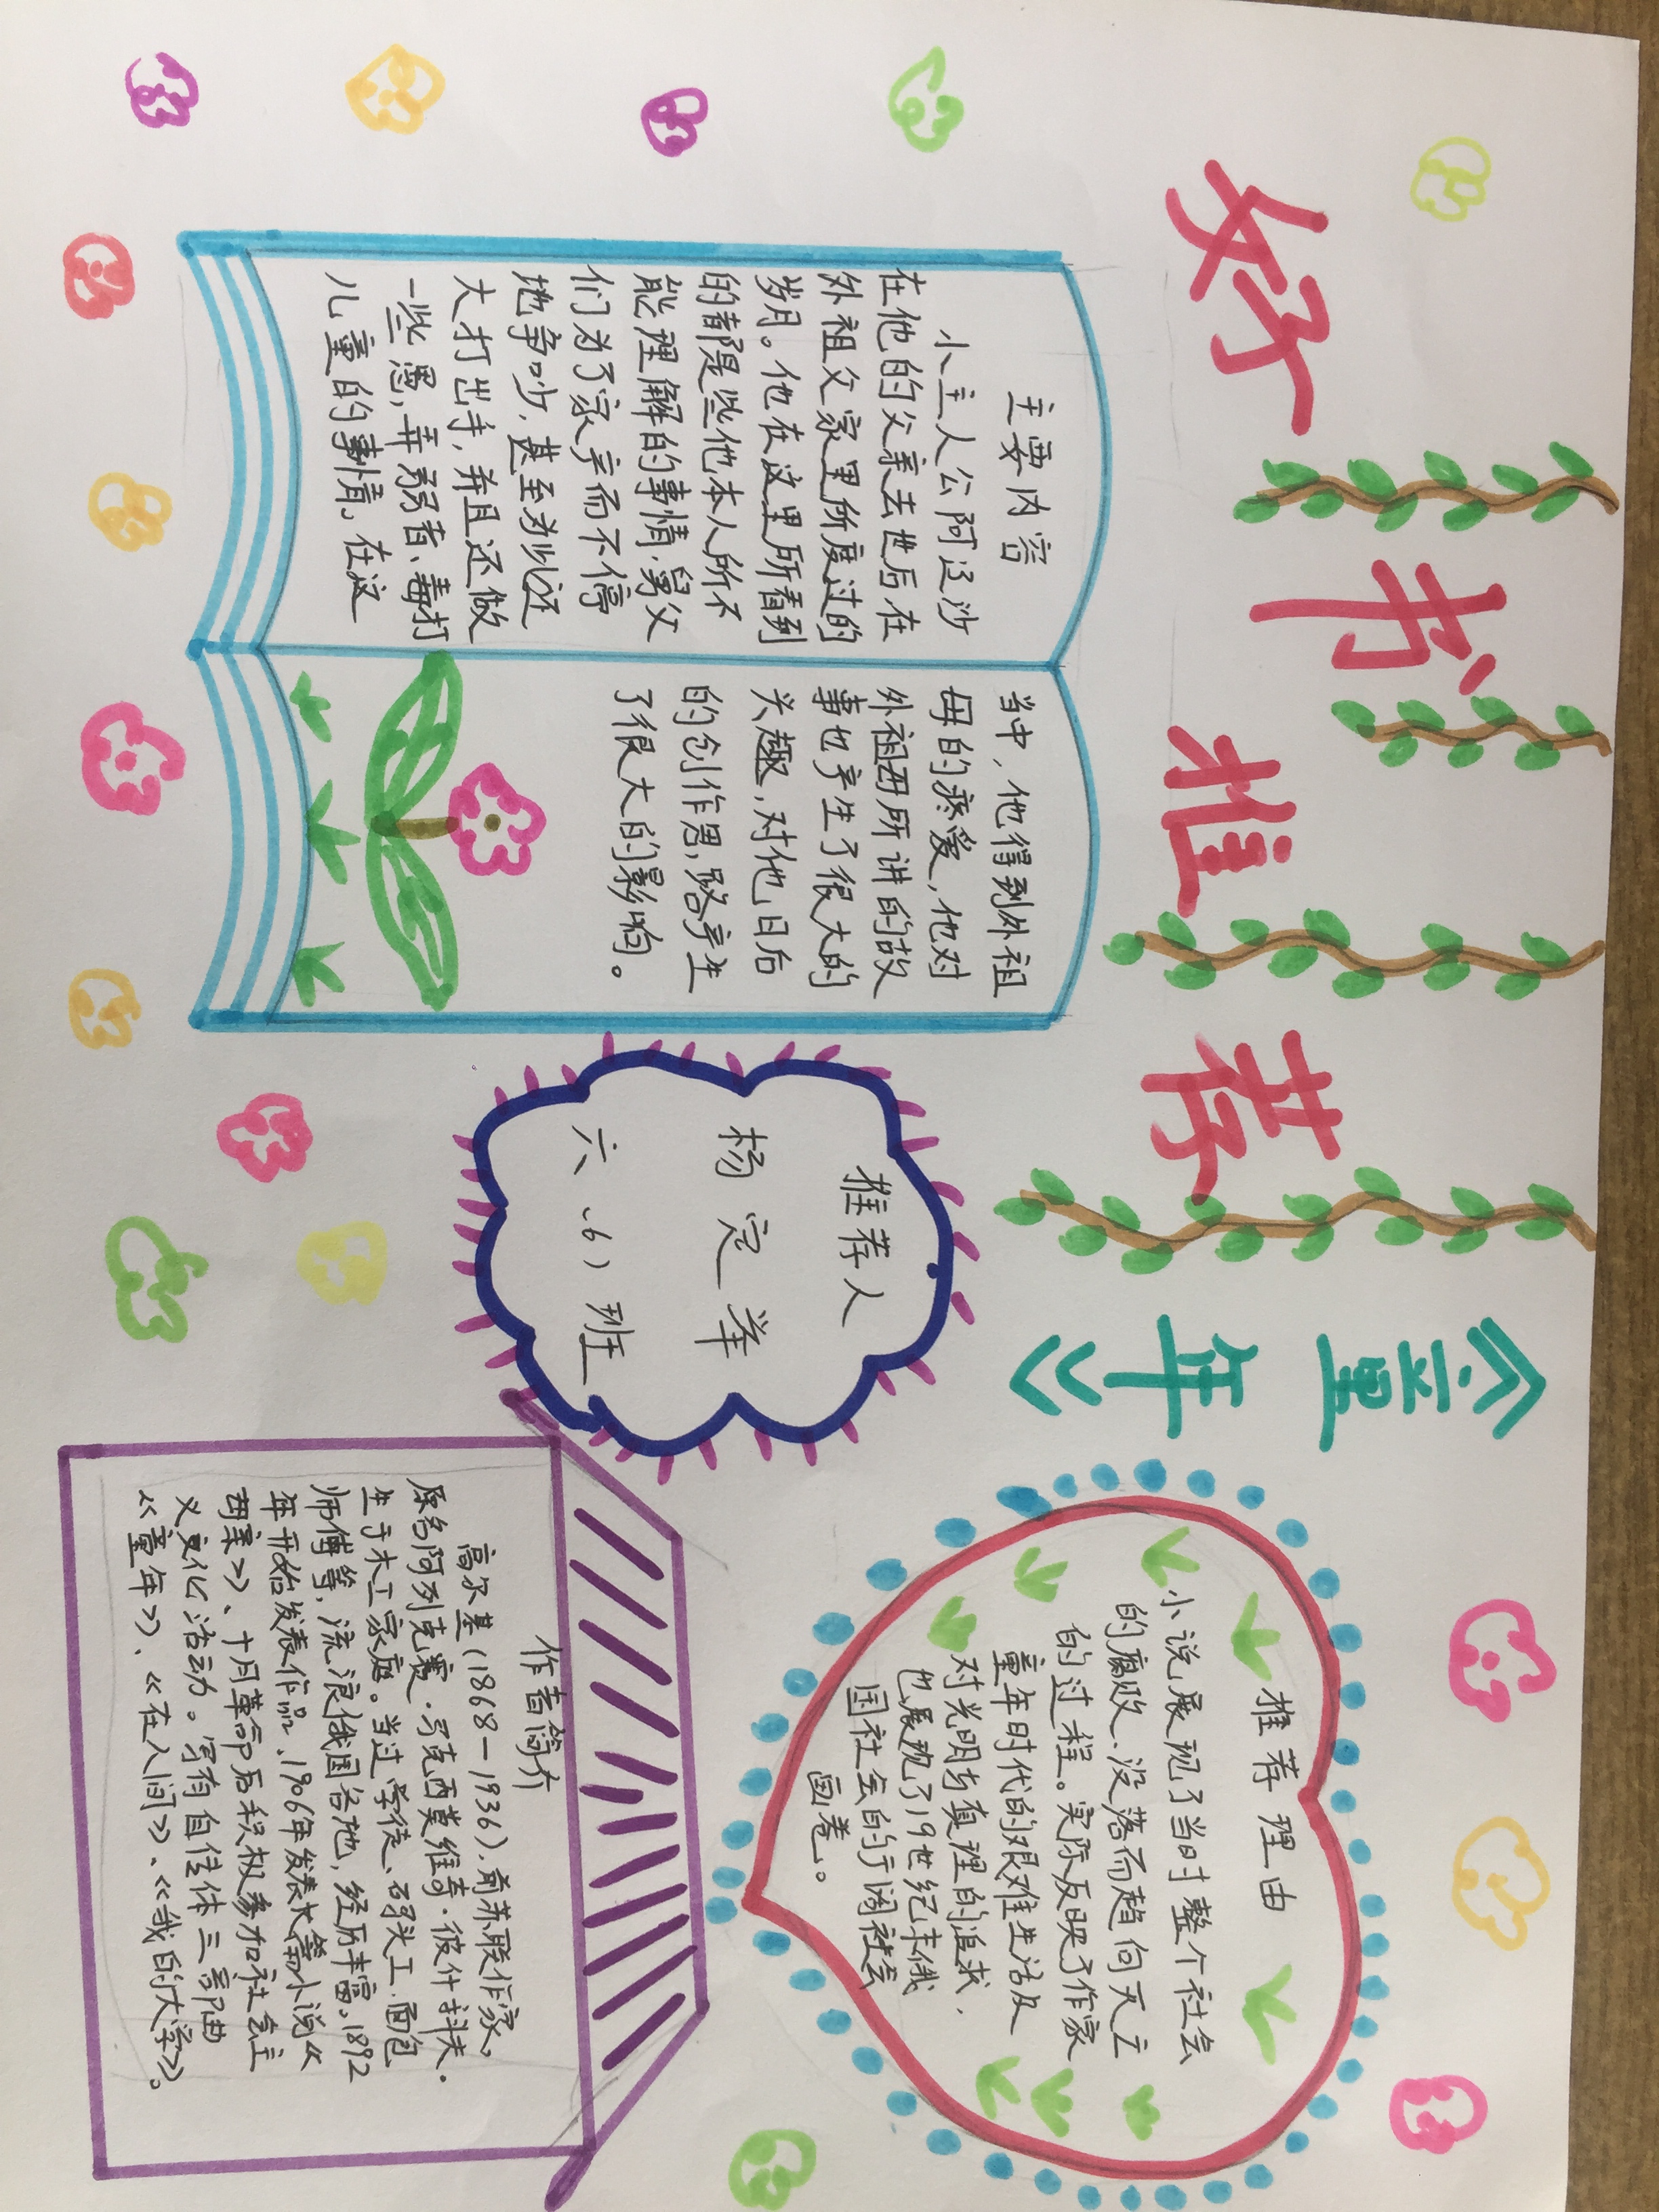 好书推荐
《童年》
主要内容
小主人公阿辽沙
在他的父亲去世后在
外祖父家里所度过的
岁月。他在这里所看到
的都是些他本人所不
能理解的事情,舅父
们为了家产而不停
地争吵,甚至为此还
大打出手,并且还做
一些愚,弄弱者、毒打
儿童的事情,在这
当中,他得到外祖
母的疼爱,他对
外祖母所讲的故
事也产生了很大的
兴趣,对他日后
的创作思,路产生
了很大的影响。
推荐人
杨定举
六、6)班
推荐理由
小说展现了当时整个社会
的腐败、没落而趋向灭亡
的过程。实际反映了作家
童年时代的艰难生活及
对光明与真理的追求,
也展现了19世纪末俄
国社会的广阔社会
画卷。
作者简介
高尔基(1868—1936),前苏联作家,
原名阿列克赛·马克西莫维奇·彼什科夫.
生于木工家庭。当过学徒、码头工、面包
师傅等,流浪俄国各地,经历丰富,1892
年开始发表作品、1906年发表长篇小说《
母亲》、十月革命后积极参加社会主
义文化活动。写有自传体三部曲
《童年》、《在人间》、《我的大学》。